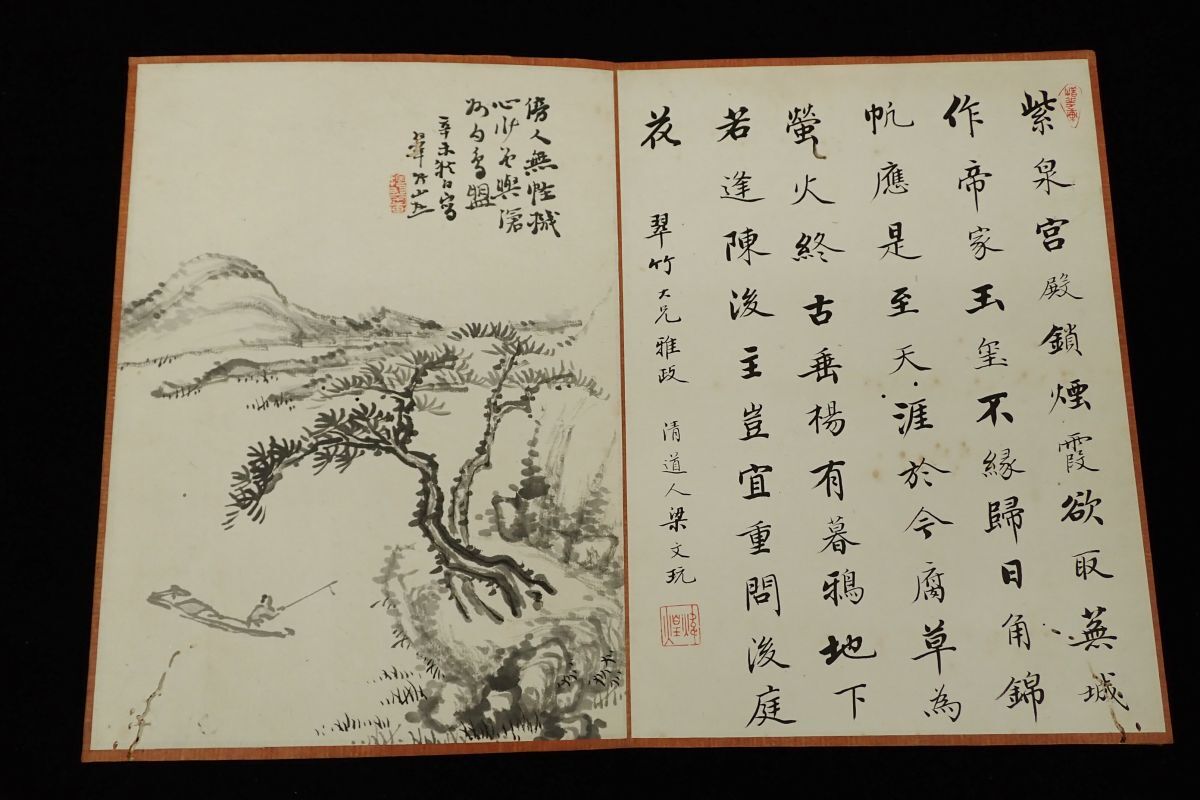 紫泉宮殿鎖煙霞欲取蕪城
作帝家玉璽不緣歸日角錦
帆應是至天涯於今腐草為
螢火終古垂楊有暮鴉地下
若逢陳後主豈宜重問後庭
花
翠竹大兄雅政 清道人梁文玩
人無性
心與滄
盟
辛未秋日寫